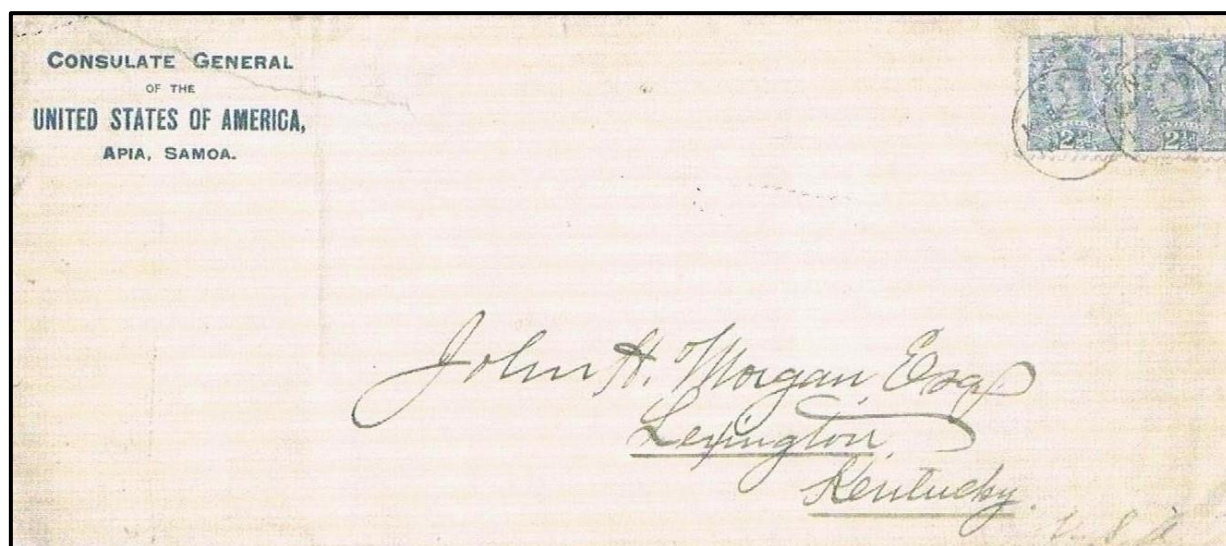 CONSULATE GENERAL
OF THE
UNITED STATES OF AMERICA,
APIA, SAMOA.
2½ 2½
John H. Morgan Esq
Lexington
Kentucky.
U.S.A